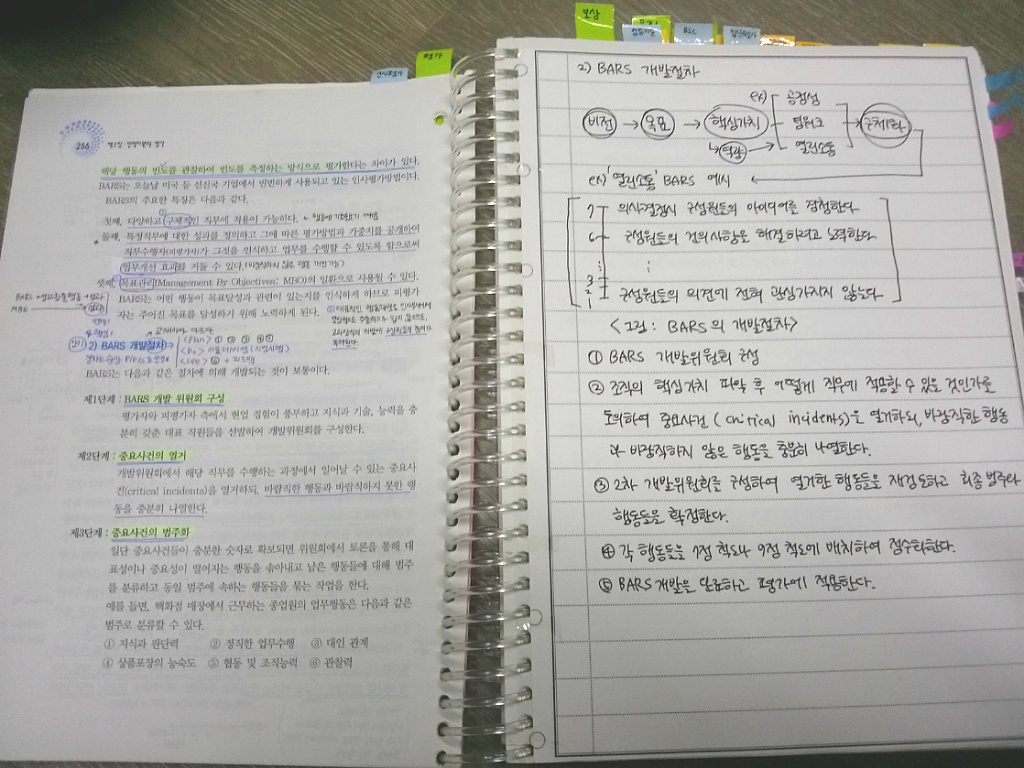 인사평가
평가
256
제2장 인적자원의 평가
해당 행동의 빈도를 관찰하여 빈도를 측정하는 방식으로 평가한다는 차이가 있다.
BARS는 오늘날 미국 등 선진국 기업에서 빈번하게 사용되고 있는 인사평가방법이다.
BARS의 주요한 특징은 다음과 같다.
첫째, 다양하고 구체적인 직무에 적용이 가능하다.
둘째, 특정직무에 대한 성과를 정의하고 그에 따른 평가방법과 가중치를 공개하여
직무수행자(피평가자)가 그것을 인식하고 업무를 수행할 수 있도록 함으로써
업무개선 효과를 거둘 수 있다.
셋째, 목표관리(Management By Objectives: MBO)의 일환으로 사용될 수 있다.
BARS는 어떤 행동이 목표달성과 관련이 있는지를 인식하게 하므로 피평가
자는 주어진 목표를 달성하기 위해 노력하게 된다.
BARS
MBO
<Plan> ① ② ③ ④ ⑤
2) BARS 개발절차
<Do>
<See> ⑥ + 피드백
BARS는 다음과 같은 절차에 의해 개발되는 것이 보통이다.
제1단계 : BARS 개발 위원회 구성
평가자와 피평가자 측에서 현업 경험이 풍부하고 지식과 기술, 능력을 충
분히 갖춘 대표 직원들을 선발하여 개발위원회를 구성한다.
제2단계 : 중요사건의 열거
개발위원회에서 해당 직무를 수행하는 과정에서 일어날 수 있는 중요사
건(critical incidents)을 열거하되, 바람직한 행동과 바람직하지 못한 행
동을 충분히 나열한다.
제3단계 : 중요사건의 범주화
일단 중요사건들이 충분한 숫자로 확보되면 위원회에서 토론을 통해 대
표성이나 중요성이 떨어지는 행동을 솎아내고 남은 행동들에 대해 범주
를 분류하고 동일 범주에 속하는 행동들을 묶는 작업을 한다.
예를 들면, 백화점 매장에서 근무하는 종업원의 업무행동은 다음과 같은
범주로 분류할 수 있다.
① 지식과 판단력 ② 정직한 업무수행 ③ 대인 관계
④ 상품포장의 능숙도 ⑤ 협동 및 조직능력 ⑥ 관찰력
보상
BSC
2) BARS 개발절차
비전 → 목표 → 핵심가치
ex) 공정성
팀워크
열린소통
구체화
역량
ex) '열린소통' BARS 예시
7 의사결정시 구성원들의 아이디어를 경청한다.
6 구성원들의 건의사항을 해결하려고 노력한다.
3
2
1 구성원들의 의견에 전혀 관심가지지 않는다.
<그림 : BARS의 개발절차>
① BARS 개발위원회 구성
② 조직의 핵심가치 파악 후 어떻게 직무에 적용할 수 있을 것인가를
논의하여 중요사건 (critical incidents)을 열거하되, 바람직한 행동
과 바람직하지 않은 행동을 충분히 나열한다.
③ 2차 개발위원회를 구성하여 열거한 행동들을 재검토하고 최종 범주와
행동들을 확정한다.
④ 각 행동들을 7점 척도나 9점 척도에 배치하여 점수화한다.
⑤ BARS 개발을 완료하고 평가에 적용한다.